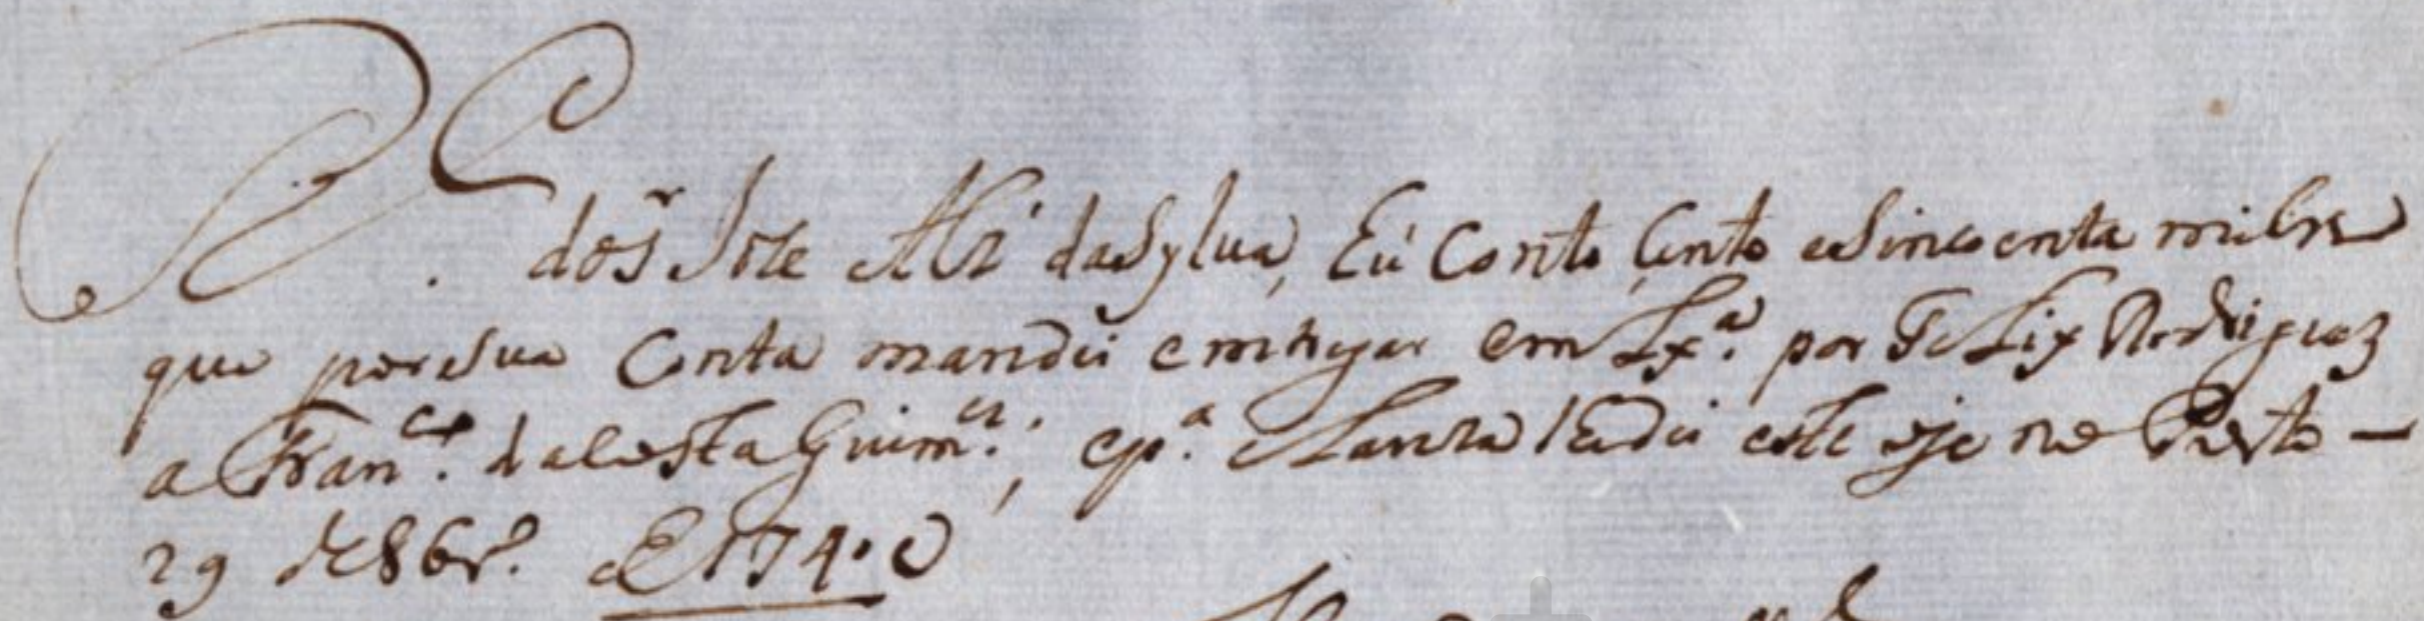 R.C. do Sr Joze Alz' da Sylva, Eú Conto, Cento e Sincoenta mil rs
que por Sua Conta mandei entregar em Lxª. por Felix Rodriguez
a Franco. da Costa Guimes.; e pª. Clareza lhe dei este oje no Porto —
29 de 8brº. de 1740